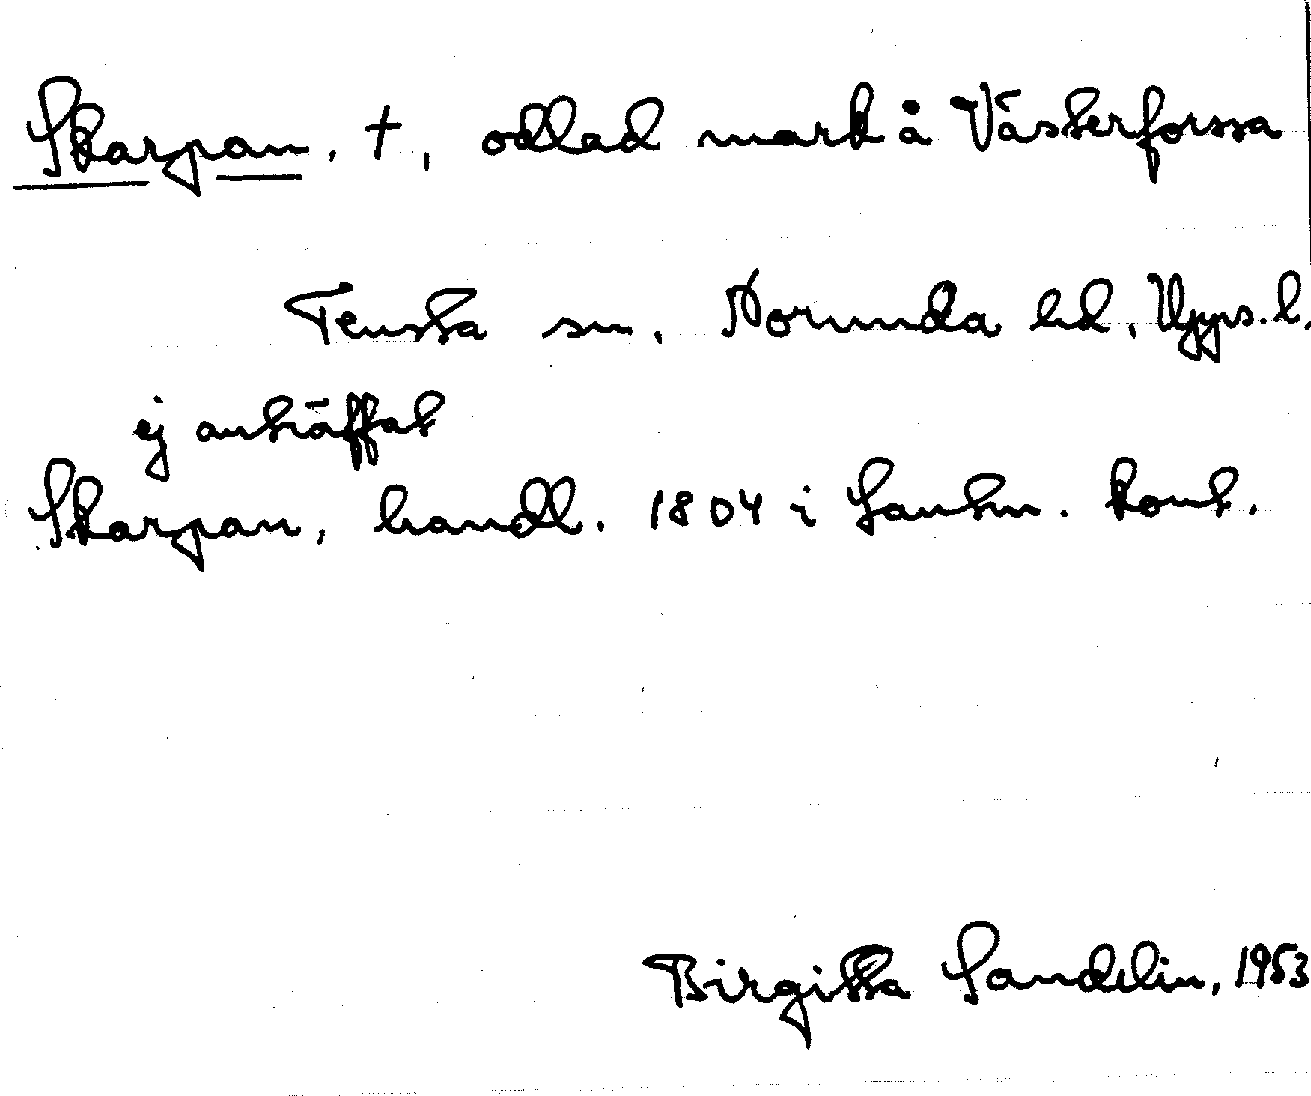 Skarpan, †, odlad mark å Västerforssa
Tensta sn, Norunda hd, Upps. l.
ej anträffat
Skarpan, handl. 1804 i Lantm. kont.
Birgitta Sandelin, 1953